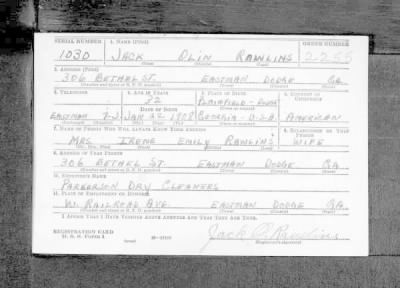 SERIAL NUMBER 1. NAME (Print) ORDER NUMBER
1030 JACK OLIN RAWLINS 2255
(First) (Middle) (Last)
2. ADDRESS (Print)
306 BETHEL ST. EASTMAN DODGE GA.
(Number and street or R. F. D. number) (Town) (County) (State)
3. TELEPHONE 4. AGE IN YEARS 5. PLACE OF BIRTH 6. COUNTRY OF CITIZENSHIP
32 PLAINFIELD - DODGE
DATE OF BIRTH
EASTMAN JAN 22 1908 GEORGIA - U.S.A. AMERICAN
7. NAME OF PERSON WHO WILL ALWAYS KNOW YOUR ADDRESS 8. RELATIONSHIP OF THAT PERSON
MRS. IRENE EMILY RAWLINS WIFE
(Mr., Mrs., Miss) (First) (Middle) (Last)
9. ADDRESS OF THAT PERSON
306 BETHEL ST EASTMAN DODGE GA.
(Number and street or R. F. D. number) (Town) (County) (State)
10. EMPLOYER'S NAME
PARKERSON DRY CLEANERS
11. PLACE OF EMPLOYMENT OR BUSINESS
W. RAILROAD AVE. EASTMAN DODGE GA
(Number and street or R. F. D. number) (Town) (County) (State)
I AFFIRM THAT I HAVE VERIFIED ABOVE ANSWERS AND THAT THEY ARE TRUE.
REGISTRATION CARD
D. S. S. FORM 1
Jack O. Rawlins
(Registrant's signature)